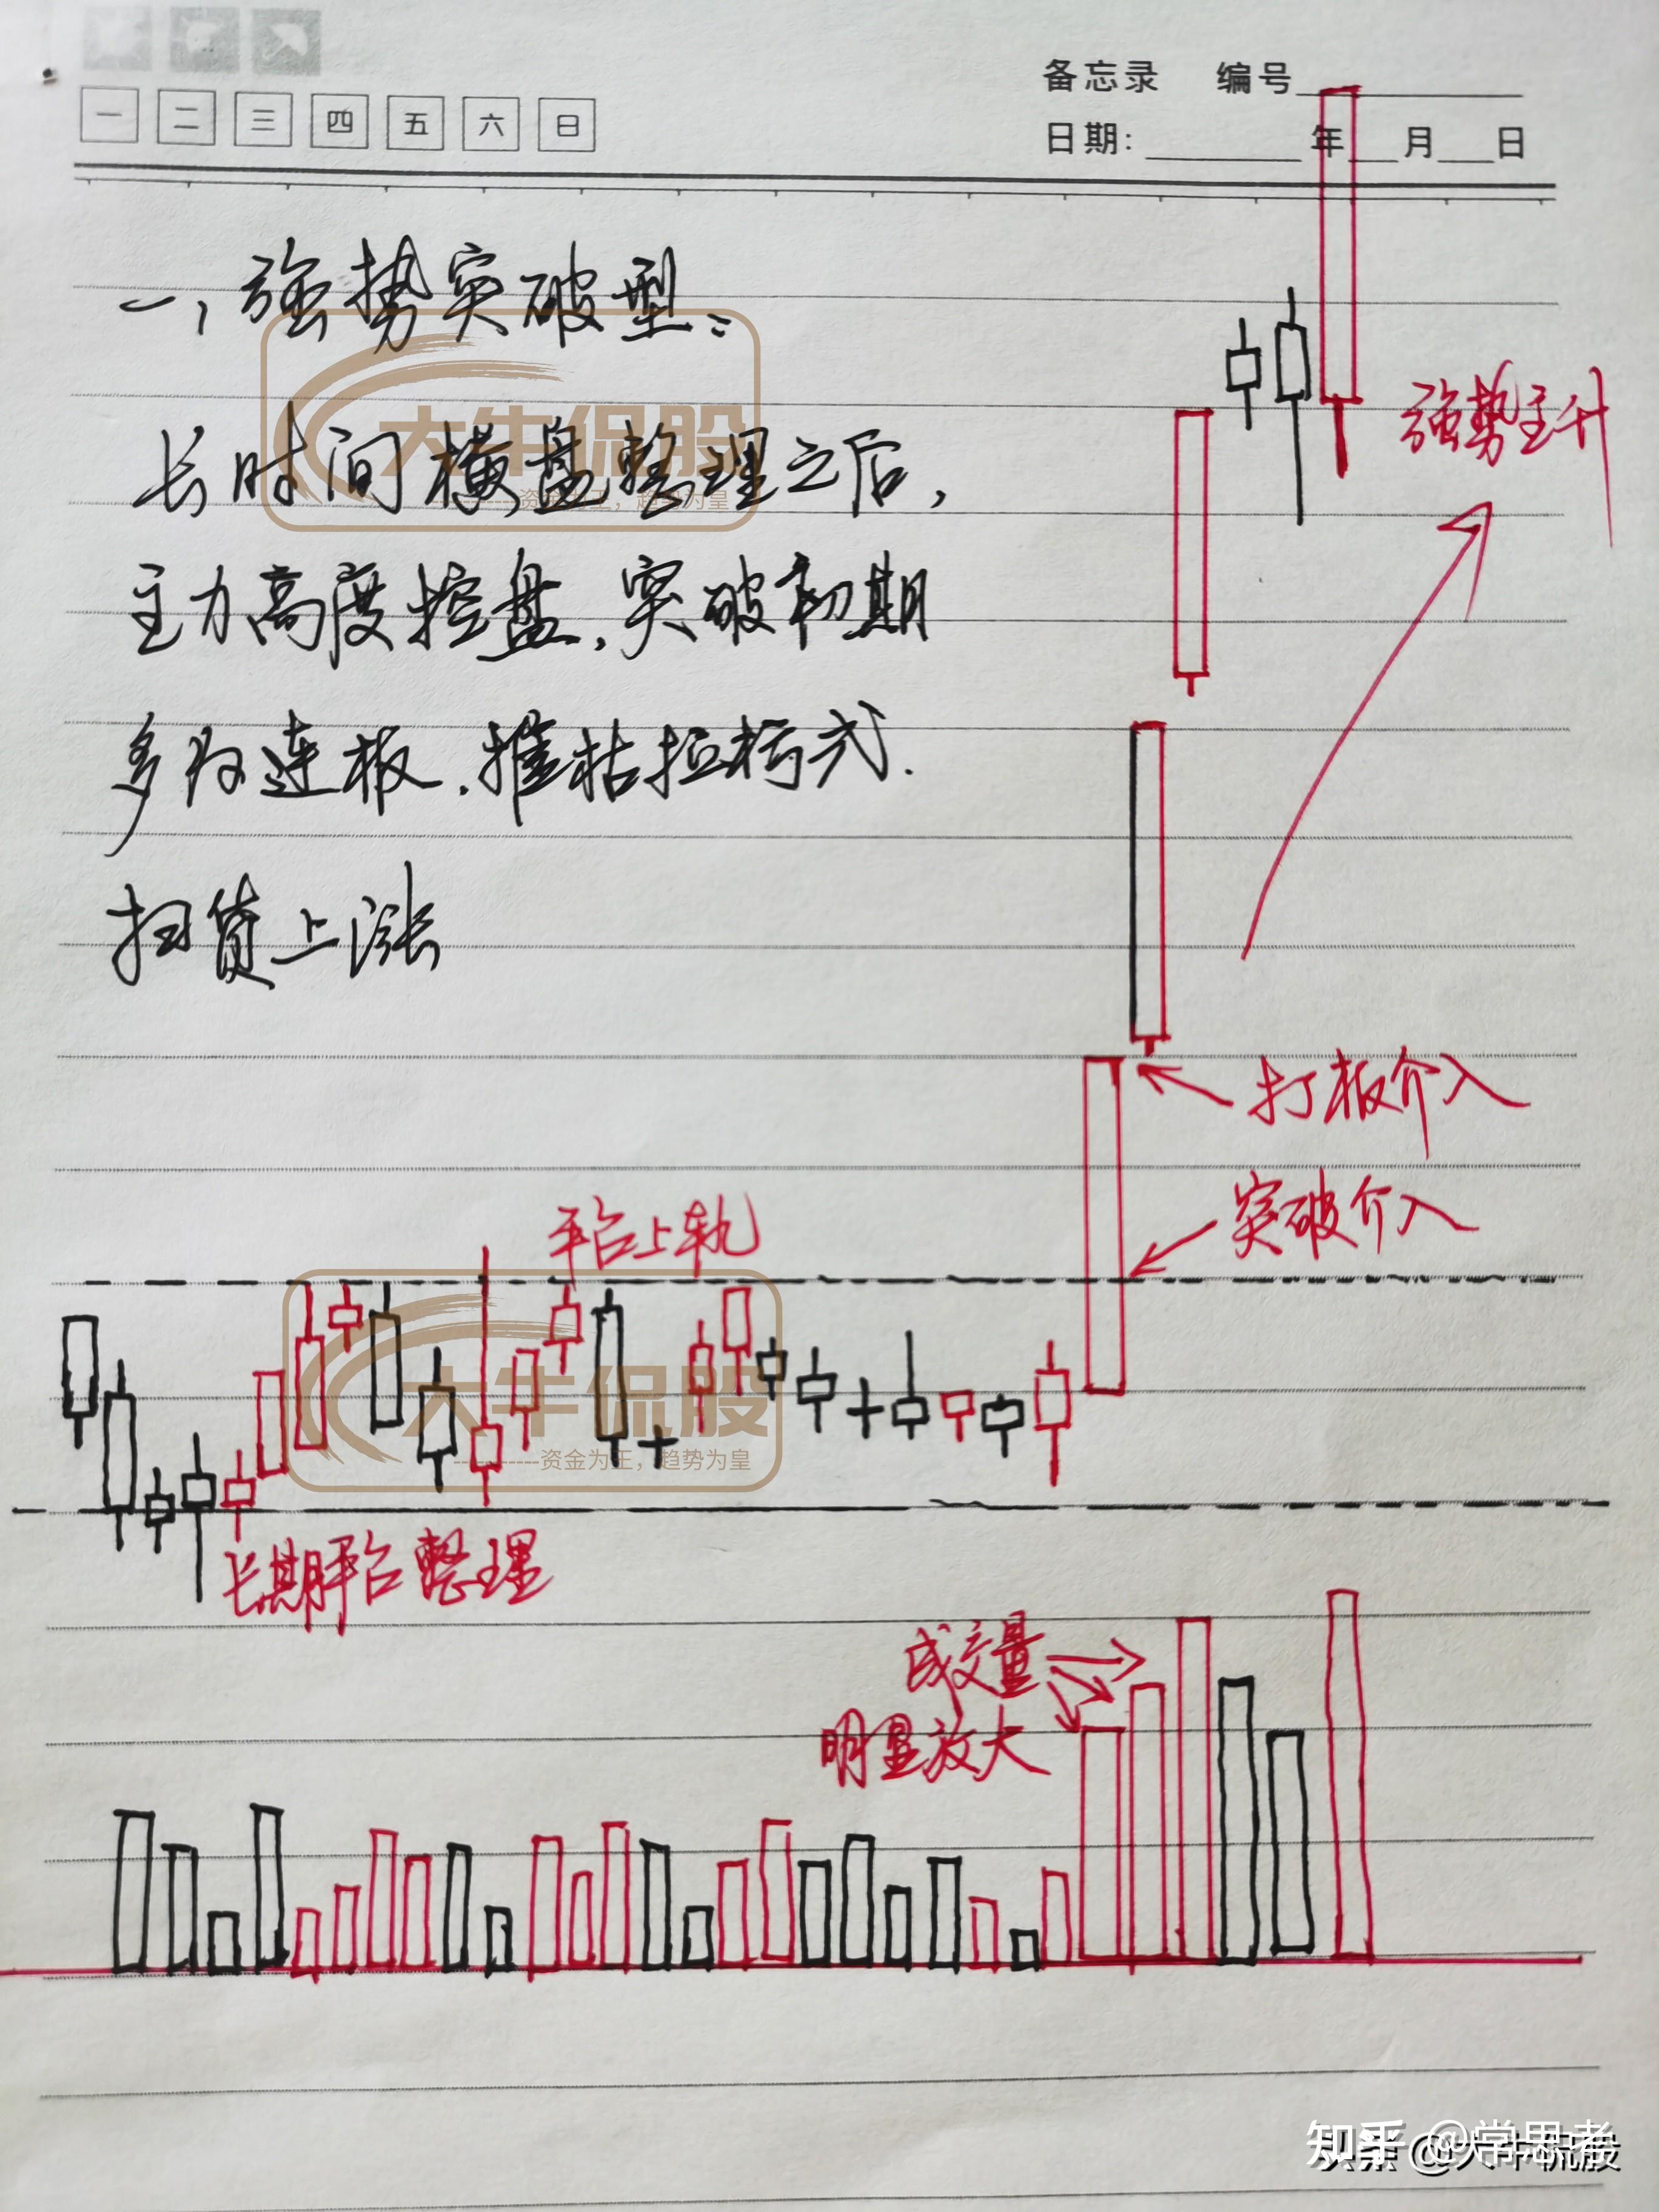 备忘录 编号
一 二 三 四 五 六 日
日期: 年 月 日
一、强势突破型:
大牛侃股
资金为王，趋势为皇
长时间横盘整理之后,
主力高度控盘,突破初期
多为连板.摧枯拉朽式.
扫货上涨
强势主升
打板介入
突破介入
平台上轨
大牛侃股
-----------资金为王，趋势为皇
长期平台整理
成交量
明显放大
知乎 @学思考
头条 @大牛侃股